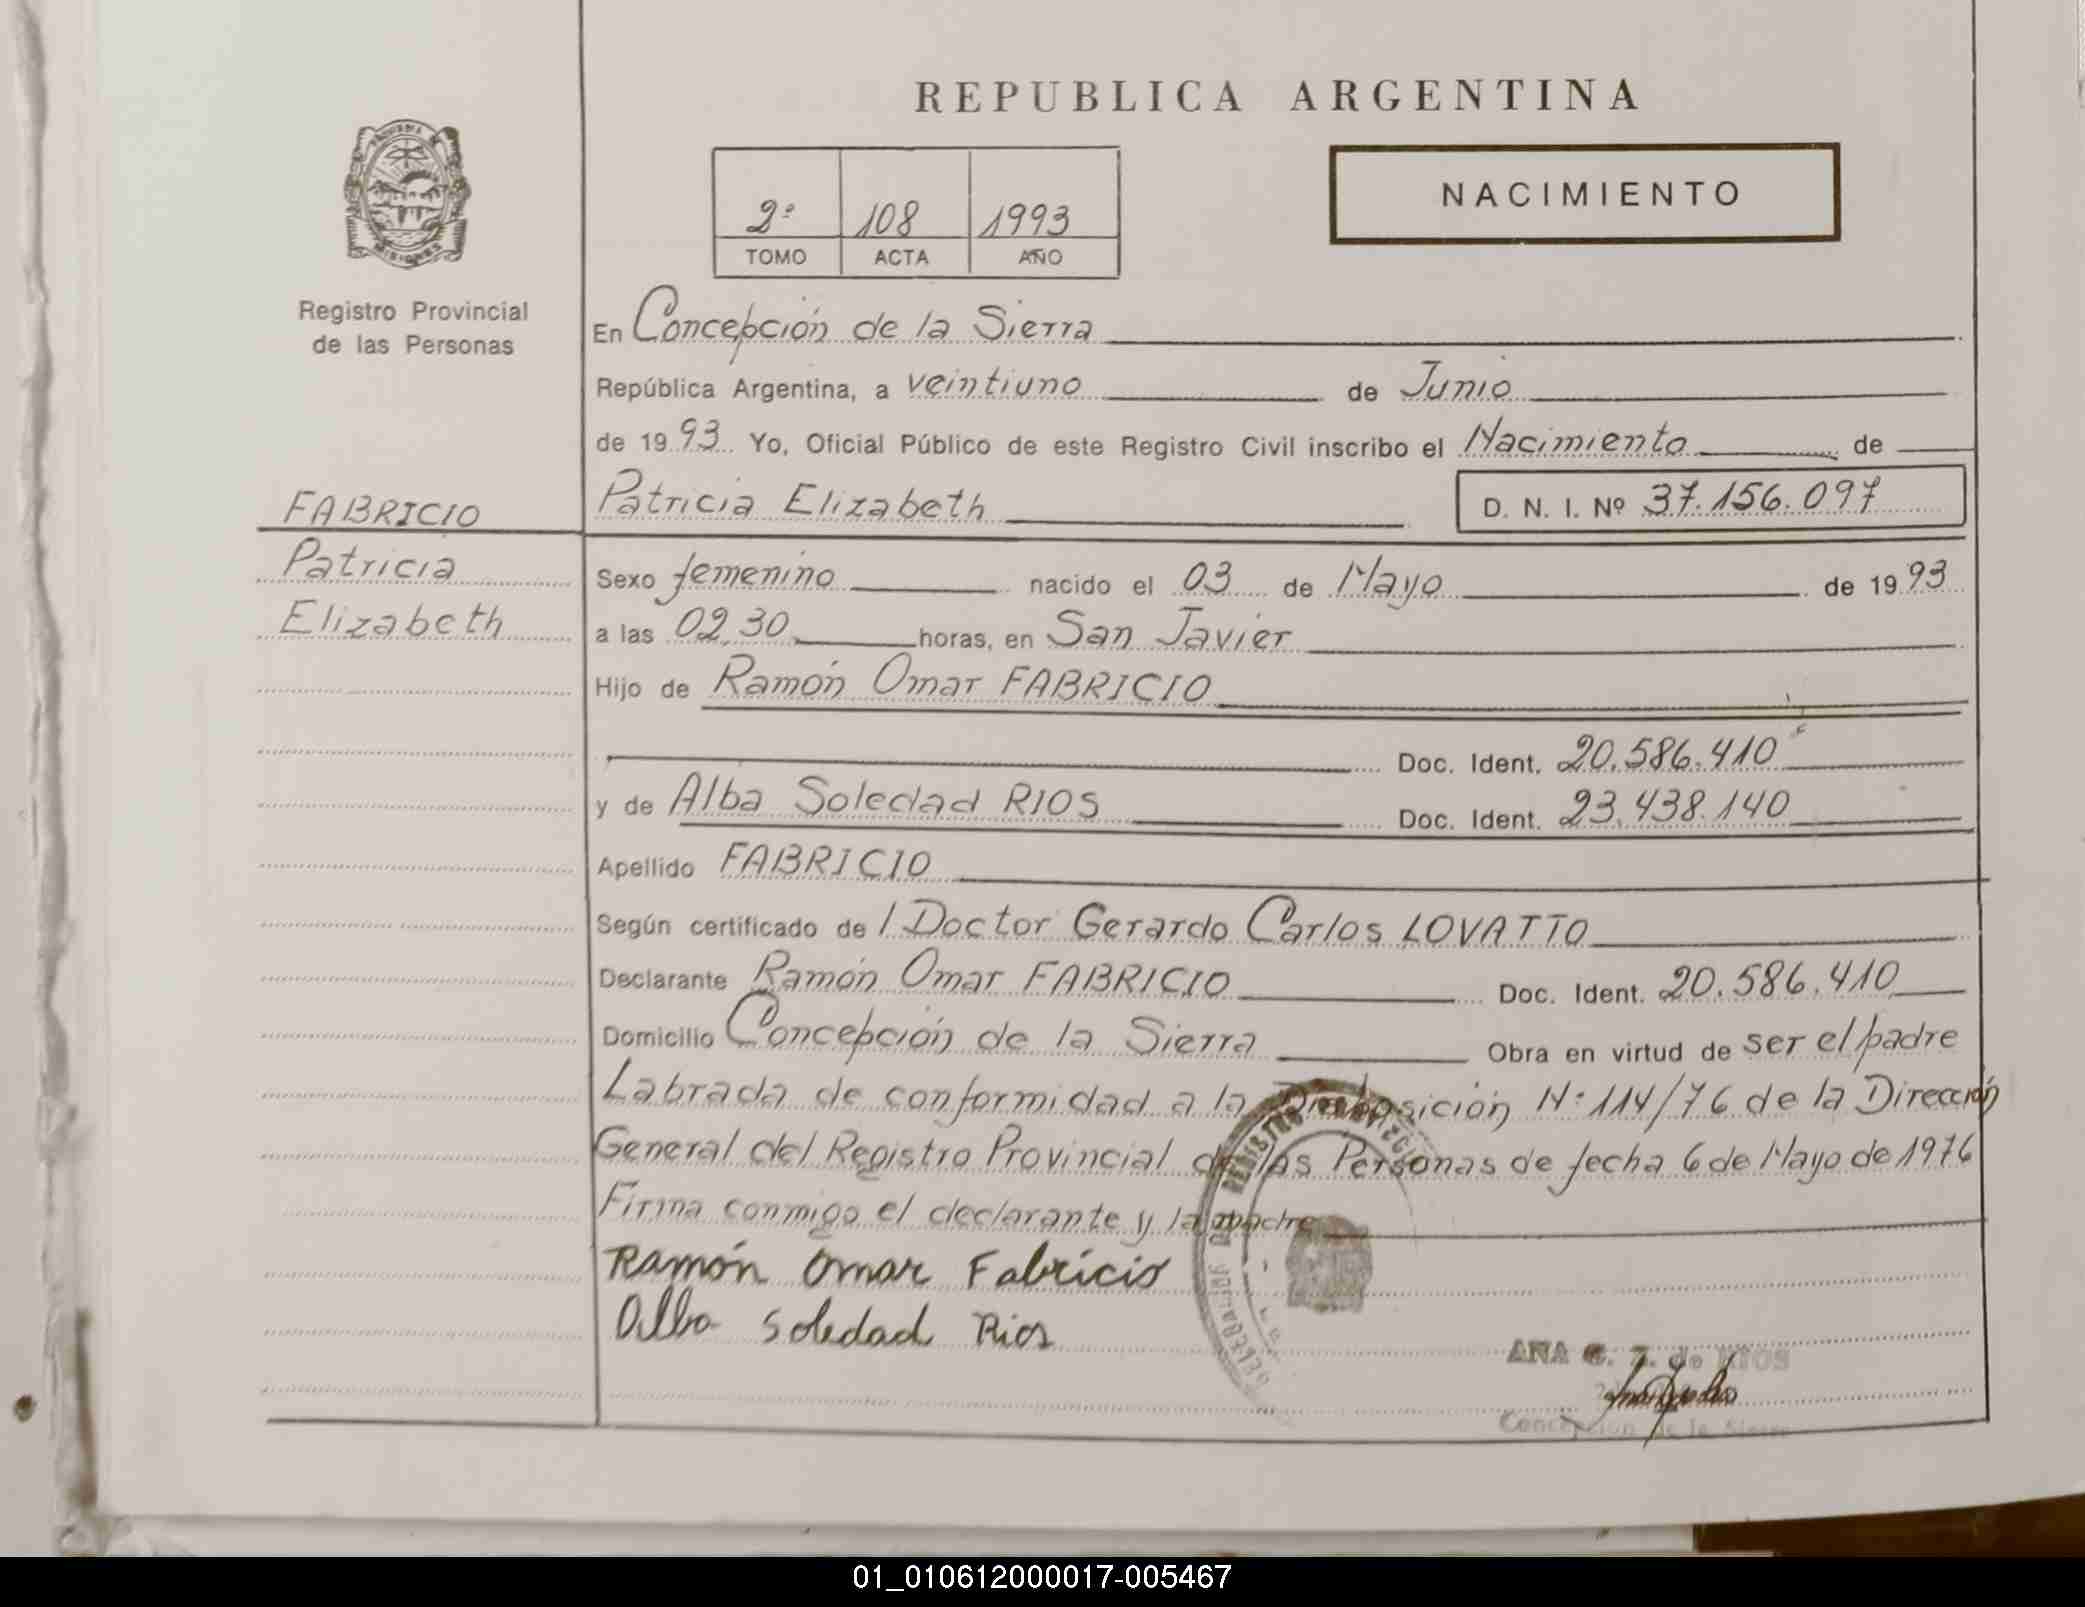 REPUBLICA ARGENTINA
PROVINCIA DE
MISIONES
Registro Provincial
de las Personas
2º 108 1993
TOMO ACTA AÑO
NACIMIENTO
En Concepción de la Sierra
República Argentina, a veintiuno de Junio
de 1993 Yo, Oficial Público de este Registro Civil inscribo el Nacimiento de
FABRICIO
Patricia
Elizabeth
Patricia Elizabeth D. N. I. Nº 37.156.097
Sexo femenino nacido el 03 de Mayo de 1993
a las 02,30 horas, en San Javier
Hijo de Ramón Omar FABRICIO
Doc. Ident. 20.586.410
y de Alba Soledad RIOS Doc. Ident. 23.438.140
Apellido FABRICIO
Según certificado de l Doctor Gerardo Carlos LOVATTO
Declarante Ramón Omar FABRICIO Doc. Ident. 20.586.410
Domicilio Concepción de la Sierra Obra en virtud de ser el padre
Labrada de conformidad a la Disposición Nº 114/76 de la Dirección
General del Registro Provincial de las Personas de fecha 6 de Mayo de 1976
Firma conmigo el declarante y la madre
Ramón Omar Fabricio
Alba Soledad Rios
ANA de RIOS
Concepción de la Sierra
01_010612000017-005467